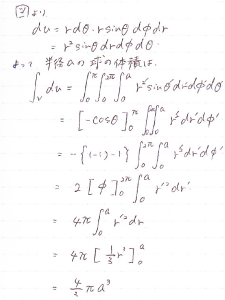 図より
du = rdθ・r sinθ dφ dr
= r² sinθ dr dφ dθ
よって 半径aの球の体積は、
∫_V du = ∫₀^π ∫₀^{2π} ∫₀^a r'² sinθ' dr' dφ' dθ'
= [-cosθ]₀^π ∫₀^{2π} ∫₀^a r'² dr' dφ'
= -{(-1)-1} ∫₀^{2π} ∫₀^a r'² dr' dφ'
= 2 [φ]₀^{2π} ∫₀^a r'² dr'
= 4π ∫₀^a r'² dr
= 4π [1/3 r³]₀^a
= 4/3 π a³